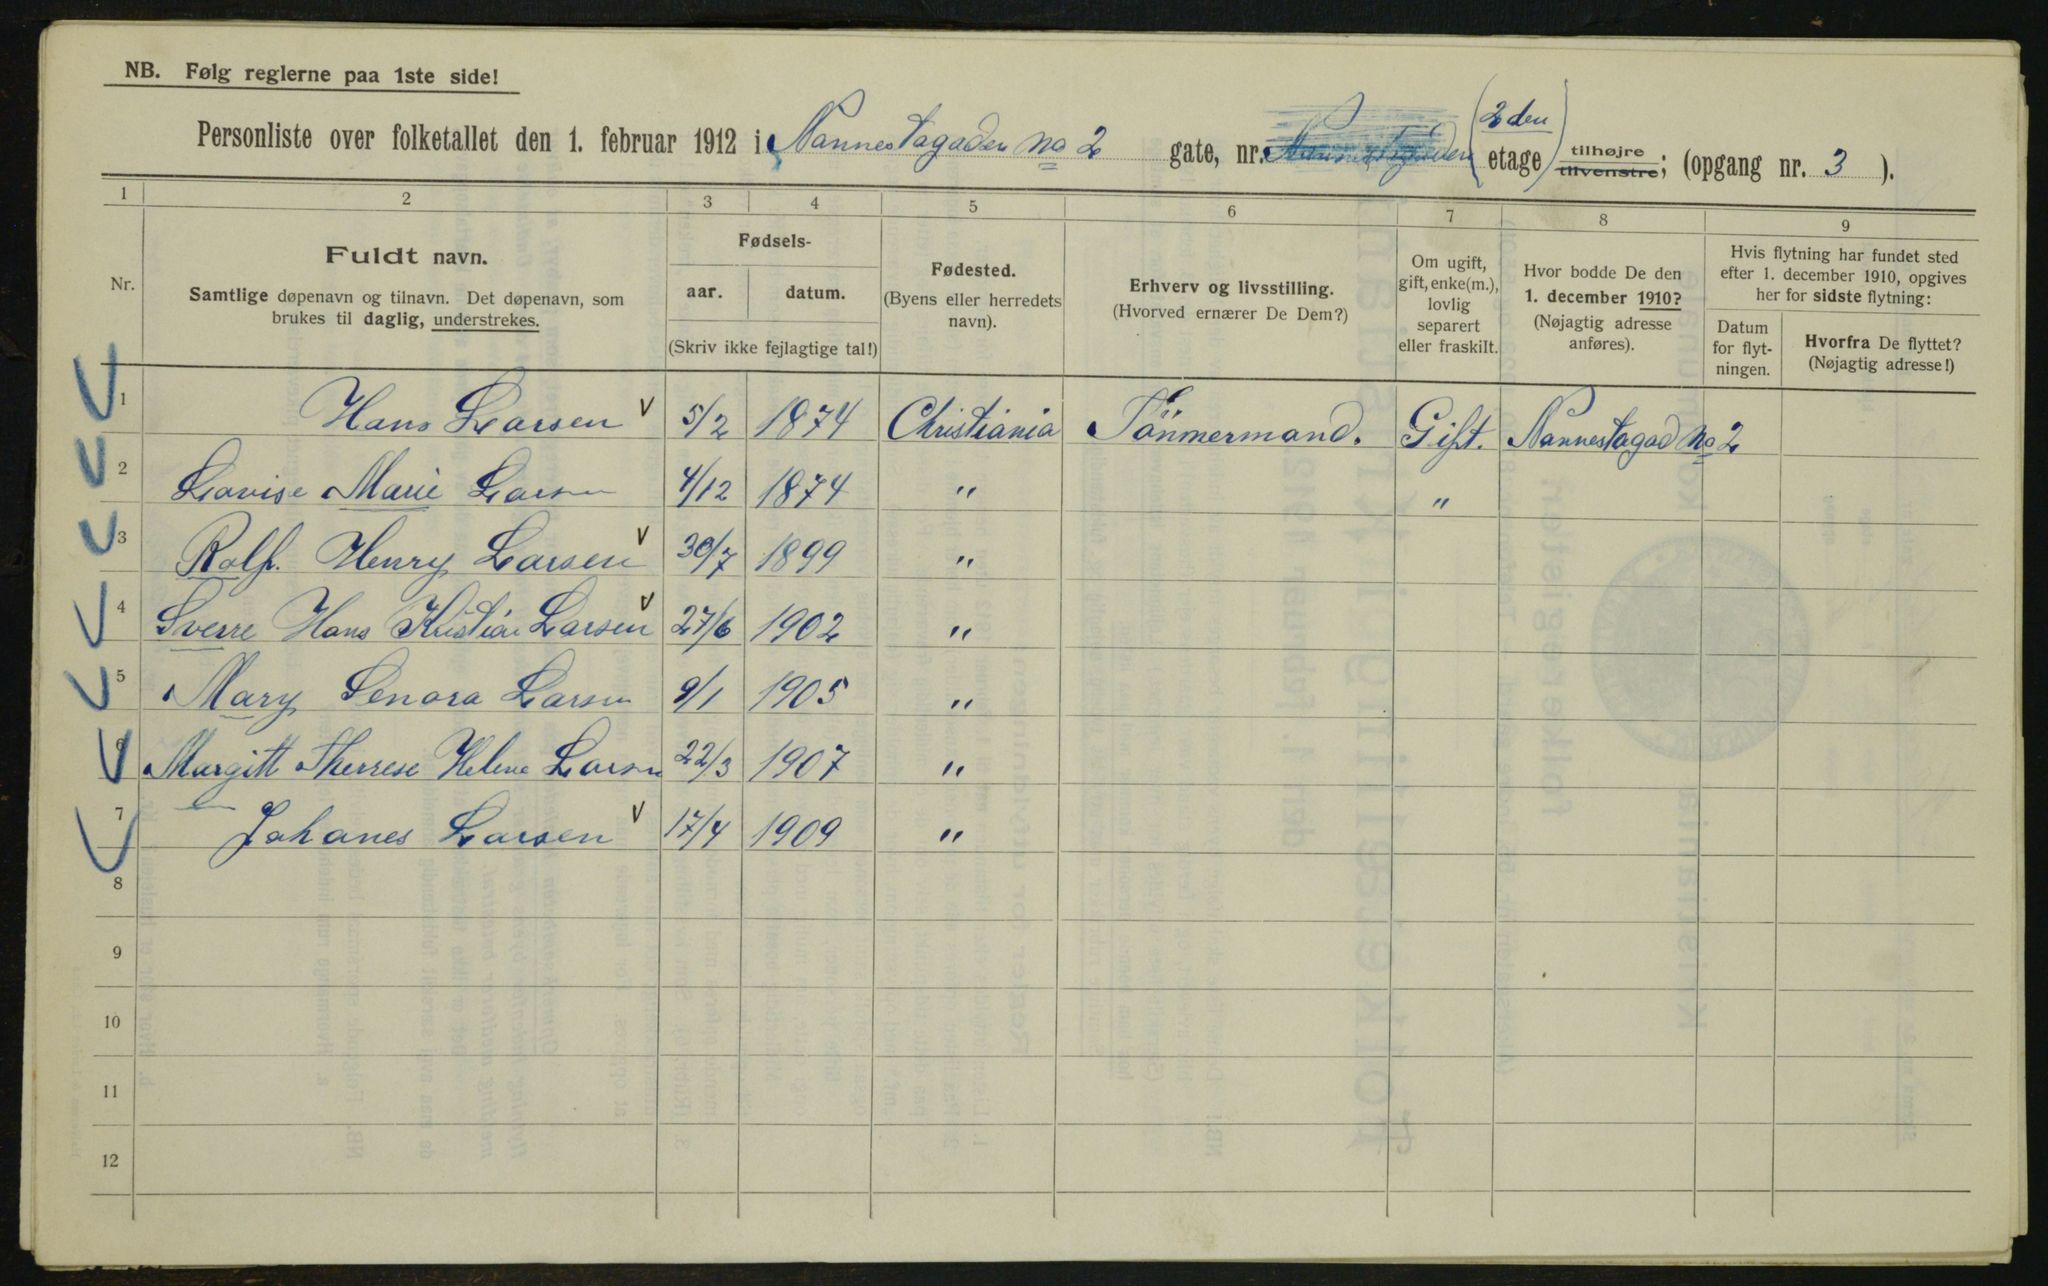 NB. Følg reglerne paa 1ste side!
Personliste over folketallet den 1. februar 1912 i Nannestagaden No 2 gate, nr. (2den etage) tilhøjre tilvenstre; (opgang nr. 3 ).
1 2 3 4 5 6 7 8 9
Nr.
Fuldt navn.
Samtlige døpenavn og tilnavn. Det døpenavn, som
brukes til daglig, understrekes.
Fødsels-
aar. datum.
(Skriv ikke fejlagtige tal!)
Fødested.
(Byens eller herredets
navn).
Erhverv og livsstilling.
(Hvorved ernærer De Dem?)
Om ugift,
gift, enke(m.),
lovlig
separert
eller fraskilt.
Hvor bodde De den
1. december 1910?
(Nøjagtig adresse
anføres).
Hvis flytning har fundet sted
efter 1. december 1910, opgives
her for sidste flytning:
Datum
for flyt-
ningen.
Hvorfra De flyttet?
(Nøjagtig adresse!)
1 Hans Larsen 5/2 1874 Christiania Tönmermand. Gift. Nannestagad No 2
2 Lovise Marie Larsen 4/12 1874 " "
3 Rolf. Henry Larsen 30/7 1899 "
4 Sverre Hans Kristian Larsen 27/6 1902 "
5 Mary Lenora Larsen 9/1 1905 "
6 Margitt Therrese Helene Larsen 22/3 1907 "
7 Johanes Larsen 17/4 1909 "
8
9
10
11
12